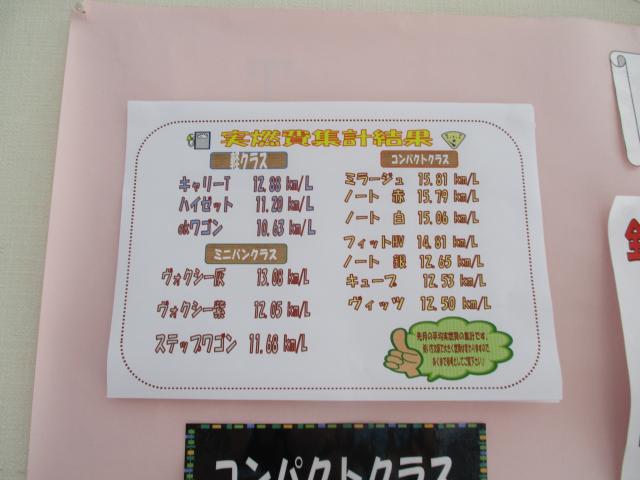 実燃費集計結果
軽クラス
キャリーT 12.88 km/L
ハイゼット 11.20 km/L
ekワゴン 10.63 km/L
ミニバンクラス
ヴォクシー灰 13.08 km/L
ヴォクシー紫 12.05 km/L
ステップワゴン 11.68 km/L
コンパクトクラス
ミラージュ 15.81 km/L
ノート 赤 15.79 km/L
ノート 白 15.06 km/L
フィットHV 14.81 km/L
ノート 銀 12.65 km/L
キューブ 12.53 km/L
ヴィッツ 12.50 km/L
先月の平均実燃費の集計です。
あくまで参考としてご覧下さい♪
コンパクトクラス